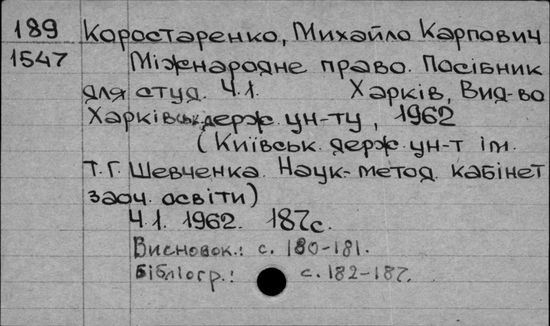 189 Коростаренко, Михайло Карпович
1547 Міжнародне право. Посібник
для студ. Ч.1. Харків, Вид-во
Харківськ. держ. ун-ту, 1962
(Київськ. держ. ун-т ім.
Т.Г. Шевченка. Наук-метод. кабінет
заоч. освіти)
Ч.1. 1962. 187с.
Висновок.: с. 180-181.
Бібліогр.: с. 182-187.